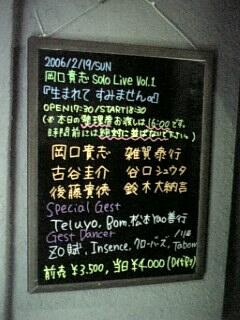 2006/2/19/SUN
岡口貴志 Solo Live Vol.1
『生まれて すみません』
OPEN17:30/START18:30
(※本日の整理番お渡しは16:00です。
時間前には絶対に並ばないで下さい。)
岡口貴志 雑賀泰行
古谷圭介 谷口シュウタ
後藤貴徳 鈴木大納言
Special Gest
Teluyo, Bom, 松本Yao善行
Gest Dancer
ZO賦, Insence, クローバーズ, Tabom
前売 ¥3,500, 当日 ¥4,000 (D代別)